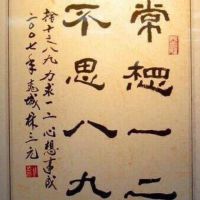 常想一二
不思八九
十之八九力求一二心想成
二〇〇七年城林三元